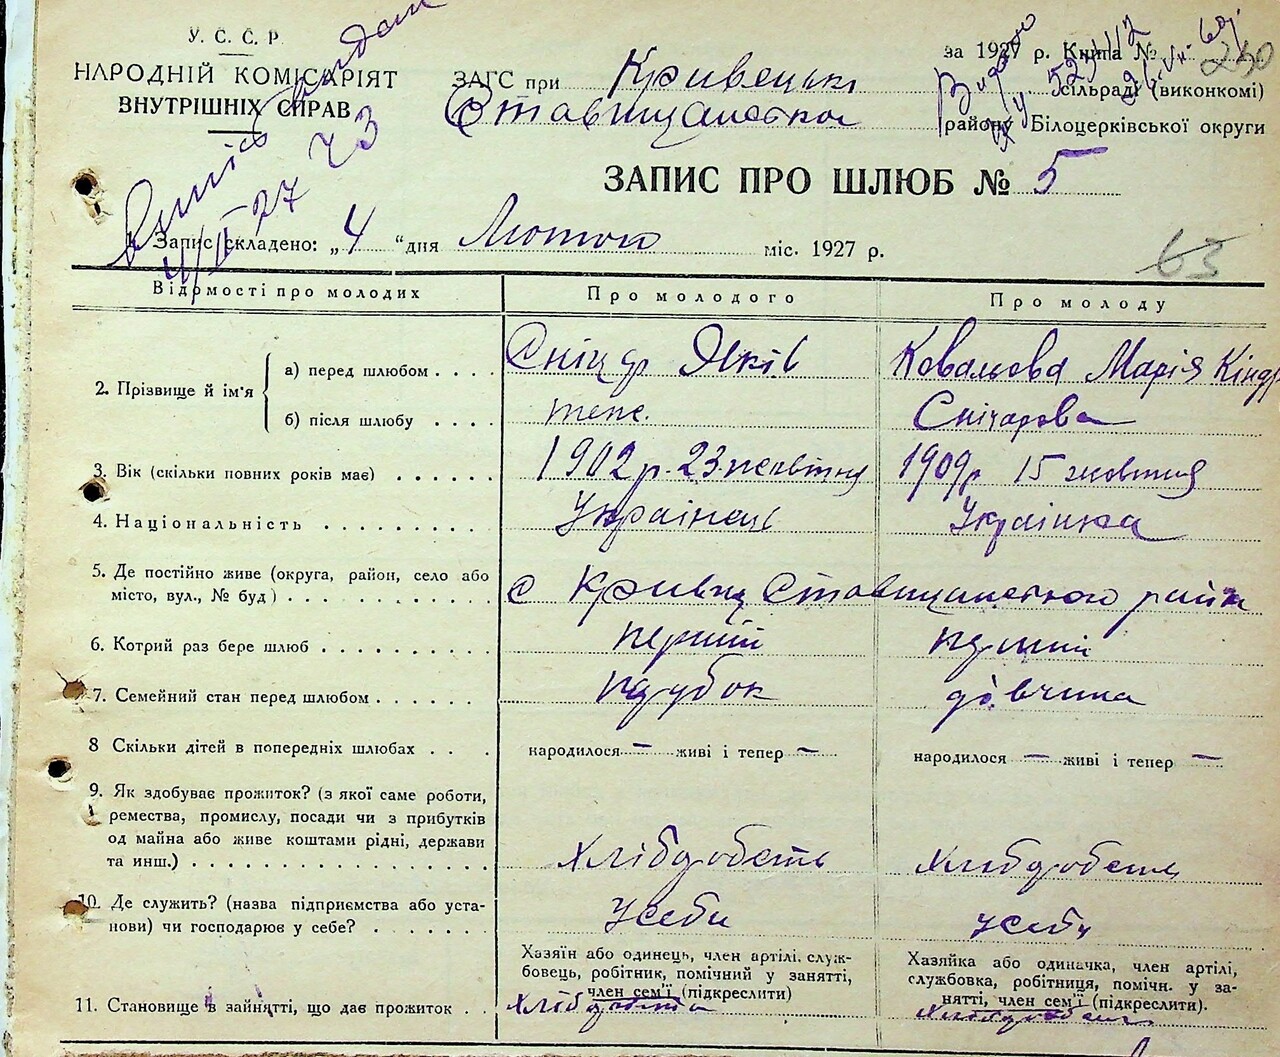 У. С. С. Р.
НАРОДНІЙ КОМІСАРІЯТ
ВНУТРІШНІХ СПРАВ
за 1927 р. Книга №
230
ЗАГС при Кривецькі сільраді (виконкомі)
Ставищанська району Білоцерківської округи
ЗАПИС ПРО ШЛЮБ № 5
4/II-27 73
1. Запис складено: „4“ дня Лютого міс. 1927 р.
63
Відомості про молодих
Про молодого
Про молоду
2. Прізвище й ім'я
а) перед шлюбом . . . .
Яків
Ковальова Марія Кіндр
б) після шлюбу . . . .
теж.
Снічарова
3. Вік (скільки повних років має) . . . . . .
1902 р. 23 жовтня
1909 р 15 жовтня
4. Національність . . . . . . . . .
Українець
Українка
5. Де постійно живе (округа, район, село або
місто, вул., № буд) . . . . . . . . . . .
с Кривец Ставищанського район
6. Котрий раз бере шлюб . . . . . . . . . .
перший
перший
7. Семейний стан перед шлюбом . . . . . . .
парубок
дівчина
8 Скільки дітей в попередніх шлюбах . . .
народилося — живі і тепер —
народилося — живі і тепер —
9. Як здобуває прожиток? (з якої саме роботи,
ремества, промислу, посади чи з прибутків
од майна або живе коштами рідні, держави
та инш.) . . . . . . . . . . . . . . . . . .
Хлібдобств
Хлібдобств
10. Де служить? (назва підприємства або уста-
нови) чи господарює у себе? . . . . . . .
У себе
у себе
Хазяїн або одинець, член артілі, служ-
бовець, робітник, помічний у занятті,
член сем'ї (підкреслити)
Хазяйка або одиначка, член артілі,
службовка, робітниця, помічн. у за-
нятті, член сем'ї (підкреслити).
11. Становище в зайнятті, що дає прожиток . .